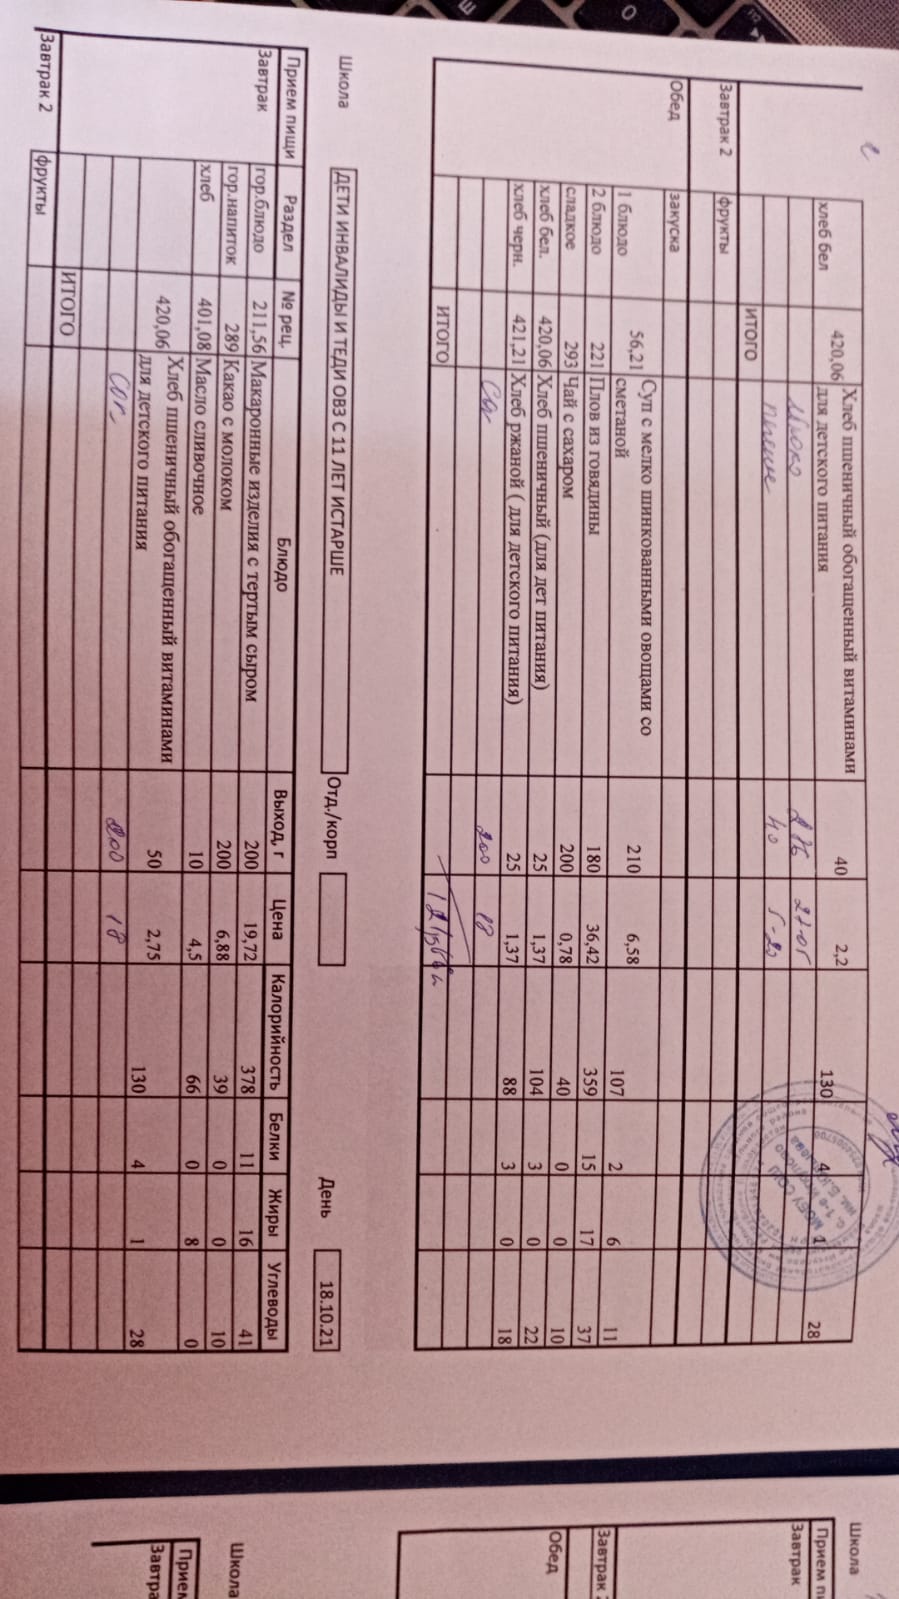 хлеб бел 420,06 Хлеб пшеничный обогащенный витаминами для детского питания 40 2,2 130 4 1 28
40 5-20
ИТОГО
Завтрак 2 фрукты
Обед закуска
1 блюдо 56,21 Суп с мелко шинкованными овощами со сметаной 210 6,58 107 2 6 11
2 блюдо 221 Плов из говядины 180 36,42 359 15 17 37
сладкое 293 Чай с сахаром 200 0,78 40 0 0 10
хлеб бел. 420,06 Хлеб пшеничный (для дет питания) 25 1,37 104 3 0 22
хлеб черн. 421,21 Хлеб ржаной ( для детского питания) 25 1,37 88 3 0 18
200 18
ИТОГО
Школа ДЕТИ ИНВАЛИДЫ И ТЕДИ ОВЗ С 11 ЛЕТ ИСТАРШЕ Отд./корп День 18.10.21
Прием пищи Раздел № рец. Блюдо Выход, г Цена Калорийность Белки Жиры Углеводы
Завтрак гор.блюдо 211,56 Макаронные изделия с тертым сыром 200 19,72 378 11 16 41
гор.напиток 289 Какао с молоком 200 6,88 39 0 0 10
хлеб 401,08 Масло сливочное 10 4,5 66 0 8 0
420,06 Хлеб пшеничный обогащенный витаминами для детского питания 50 2,75 130 4 1 28
Сок 200 18
ИТОГО
Завтрак 2 фрукты
Школа
Прием пи
Завтрак
Завтрак
Обед
Школа
Прием
Завтра